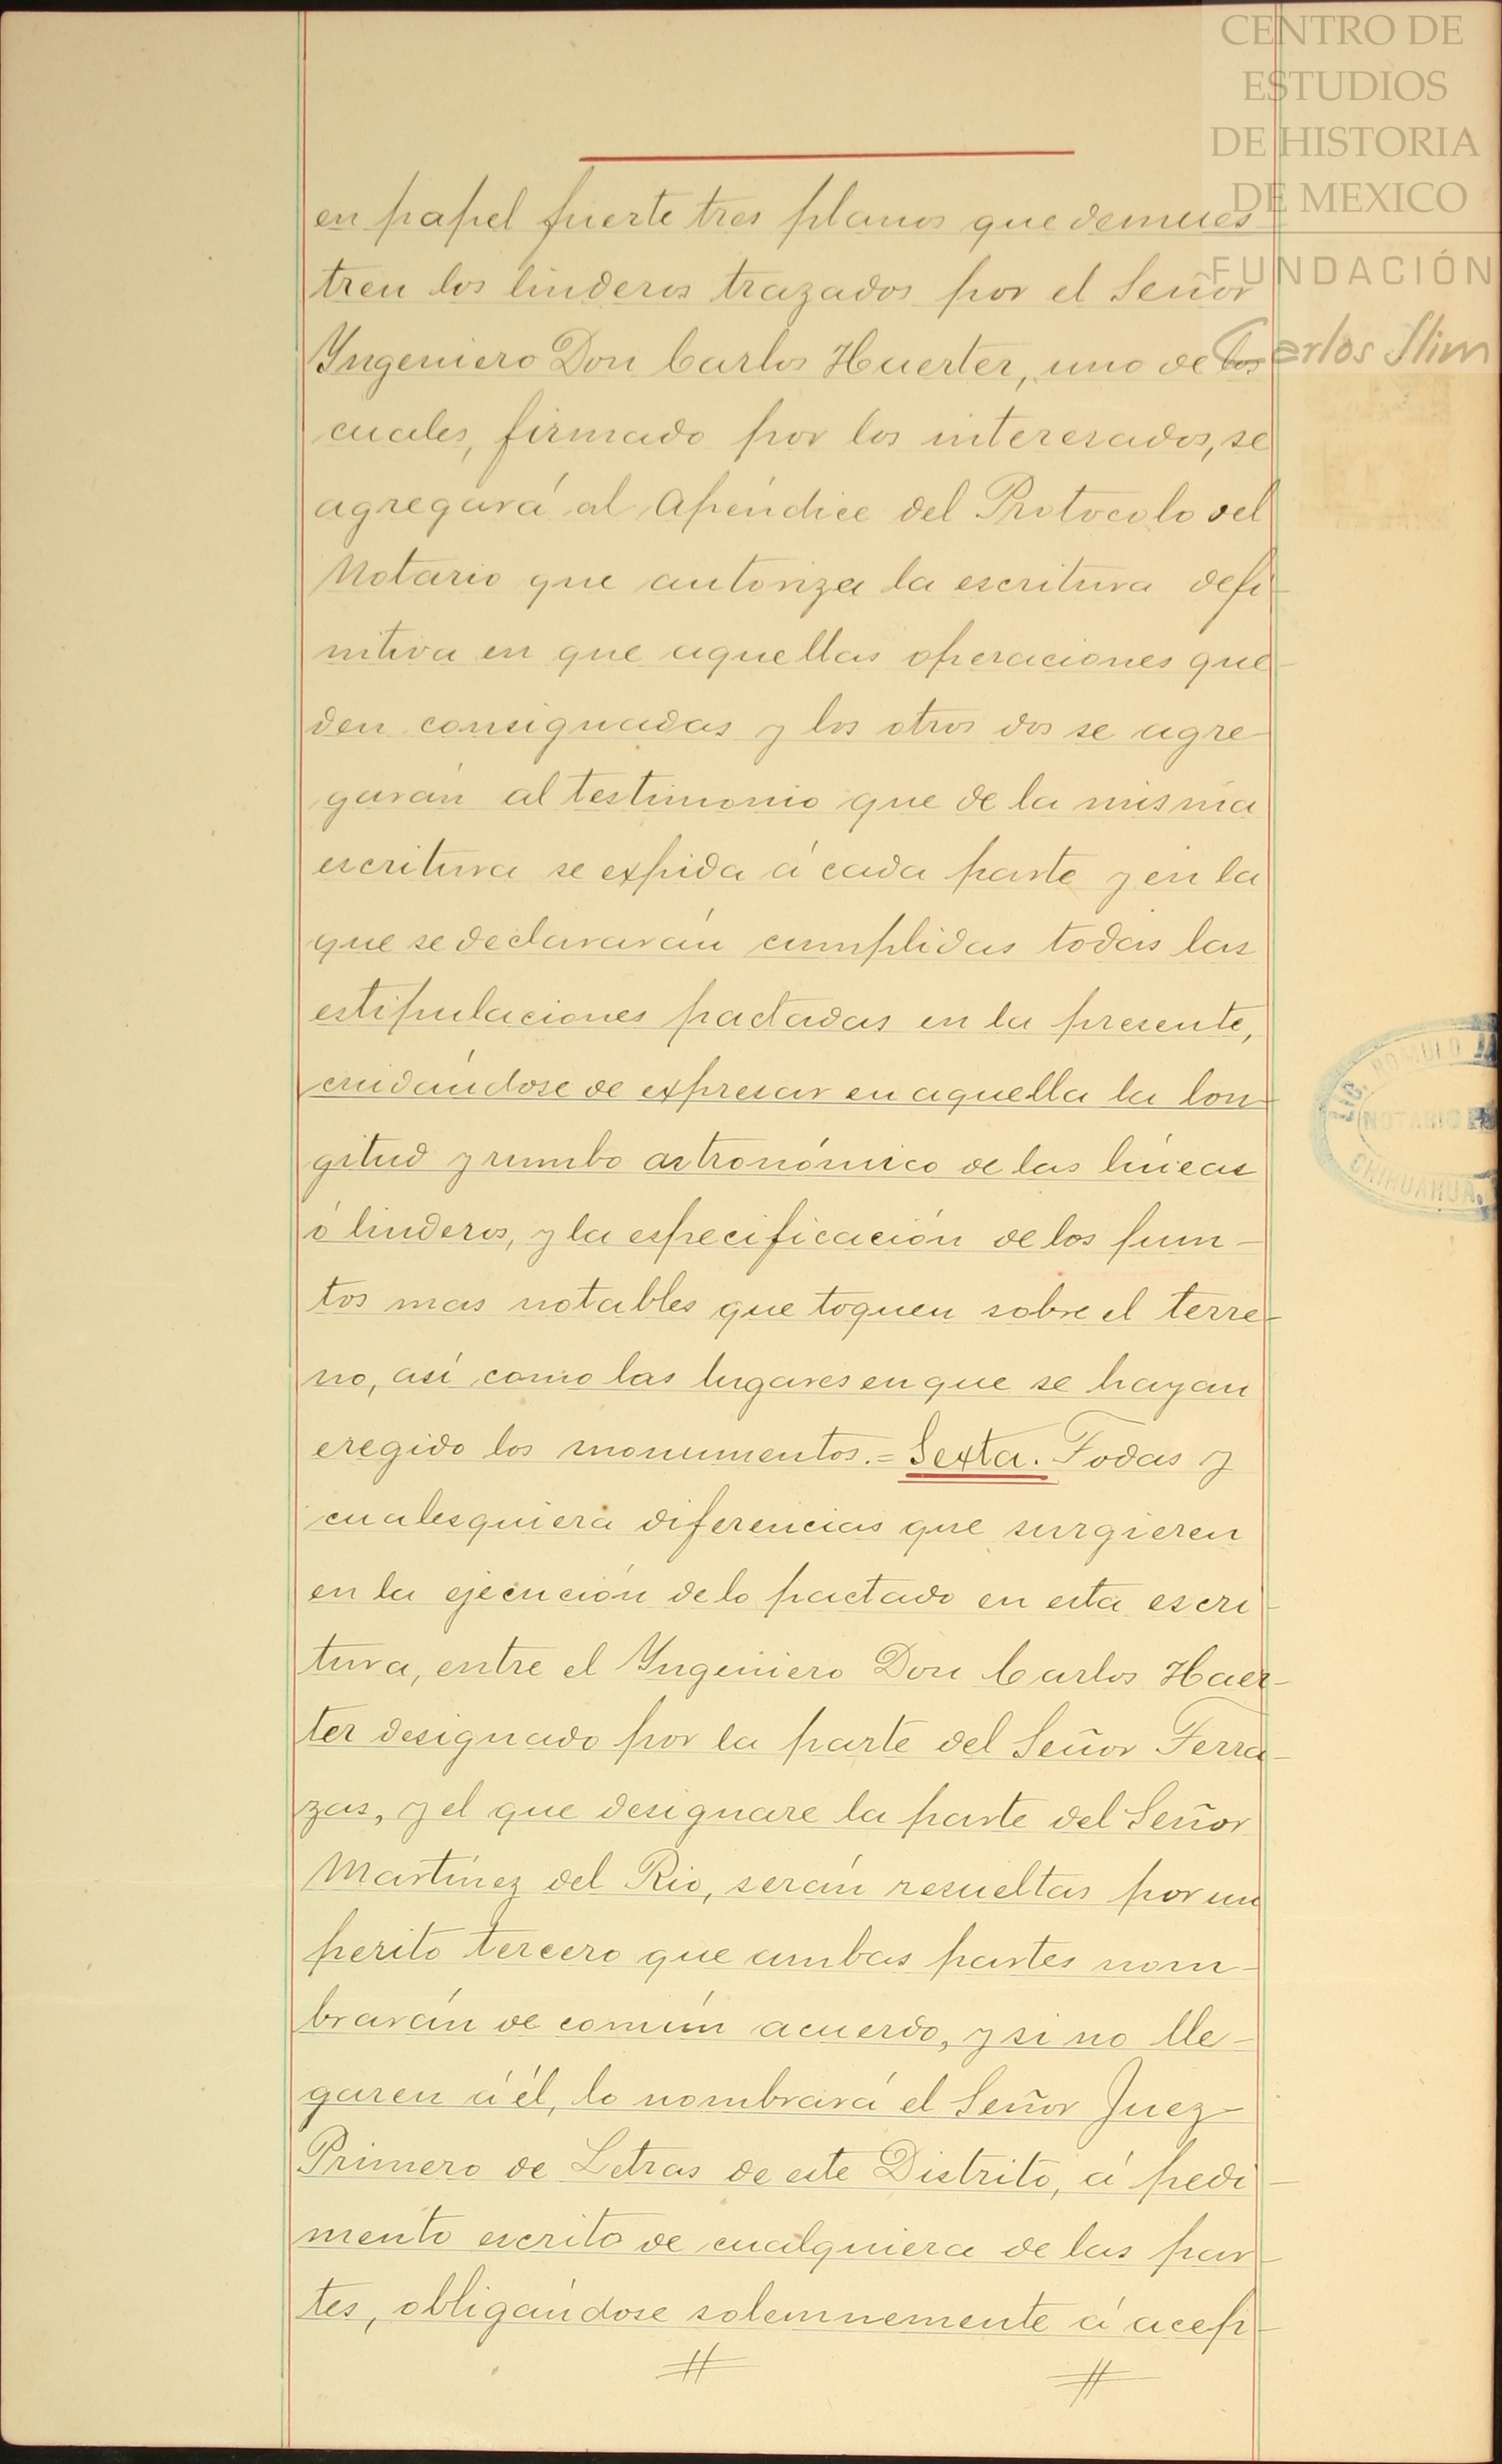 CENTRO DE
ESTUDIOS
DE HISTORIA
DE MEXICO
FUNDACIÓN
Carlos Slim
en papel fuerte tres planos que demues
tren los linderos trazados por el Señor
Yngeniero Don Carlos Haerter, uno de los
cuales, firmado por los interesados, se
agregará al Apéndice del Protocolo del
Notario que autoriza la escritura defi-
nitiva en que aquellas operaciones que-
den consignadas y los otros dos se agre-
garán al testimonio que de la misma
escritura se expida á cada parte y en la
que se declararán cumplidas todas las
estipulaciones pactadas en la presente,
cuidándose de expresar en aquella la lon-
gitud y rumbo astronómico de las líneas
ó linderos, y la especificación de los pun-
tos mas notables que toquen sobre el terre-
no, así como las lugares en que se hayan
eregido los monumentos.= Sexta. Todas y
cualesquiera diferencias que surgieren
en la ejecución de lo pactado en esta escri-
tura, entre el Yngeniero Don Carlos Haer-
ter designado por la parte del Señor Terra-
zas, y el que designare la parte del Señor
Martínez del Rio, serán resueltas por un
perito tercero que ambas partes nom-
brarán de común acuerdo, y si no lle-
garen á él, lo nombrará el Señor Juez
Primero de Letras de este Distrito, á pedi-
mento escrito de cualquiera de las par-
tes, obligándose solemnemente á acep-
LIC. ROMULO
NOTARIO
CHIHUAHUA.